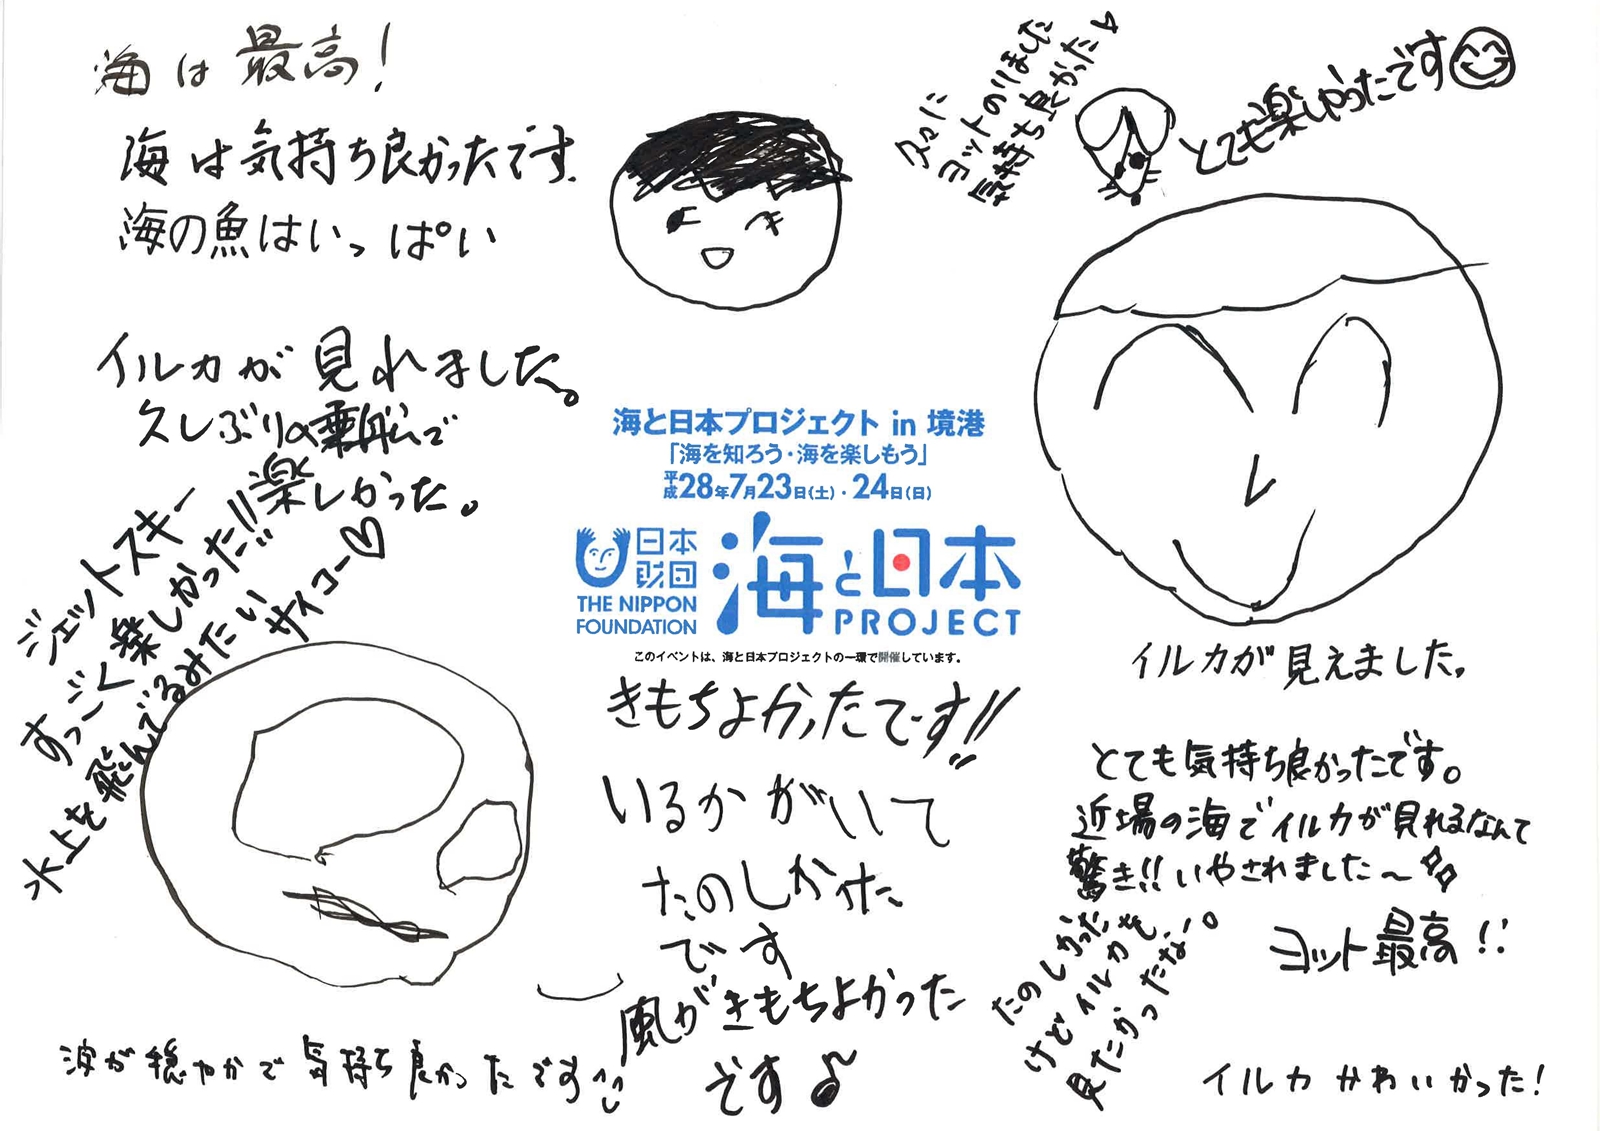 海は最高!
海は気持ち良かったです.
海の魚はいっぱい
久々に
ヨットのりました
気持ち良かった♡
とても楽しかったです
イルカが見れました。
久しぶりの乗船で
楽しかった。
ジェットスキー
すっごく楽しかった!!
水上を飛んでるみたい
サイコー♡
海と日本プロジェクト in 境港
「海を知ろう・海を楽しもう」
平成28年7月23日(土)・24日(日)
日本財団
THE NIPPON FOUNDATION
海と日本
PROJECT
このイベントは、海と日本プロジェクトの一環で開催しています。
きもちよかったです!!
いるかがいて
たのしかった
です
風がきもちよかった
です♪
イルカが見えました。
とても気持ち良かったです。
近場の海でイルカが見れるなんて
驚き!!いやされました〜
ヨット最高!!
たのしかった
けどイルカを
見たかったな!。
波が穏やかで気持ち良かったです
イルカかわいかった!